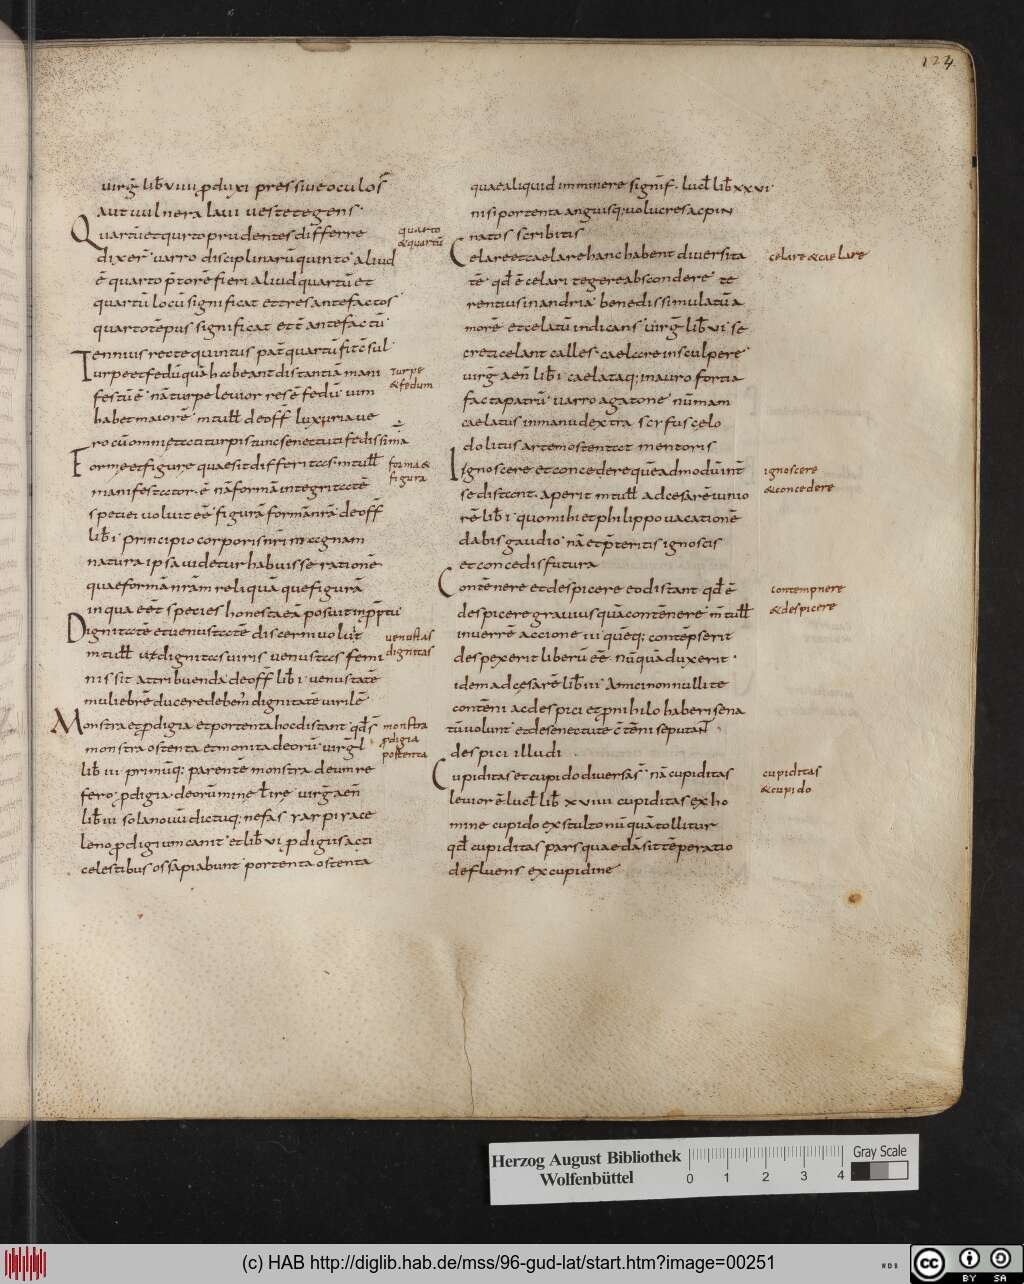 124
uirḡ lib̄ viiii ꝓduxi pressiue oculos
aut vulnera laui ueste tegens
Quartū et qurto prudentes differre
dixer̄ varro disciplinarū quinto aliud
ē quarto p̄torē fieri aliud quartū et
quartū locū significat et tres ante factos
quarto tēpus significat et t̄ ante factū
Ennius recte quintus pat̄ quartū fit c̄sul
Turpe et fedū quā habeant distantiā mani
festū ē nā turpe leuior res ē fedū uim
habet maiorē m̄ tull̄ de off̄ luxuria ue
ro cū omni ętati turpis tunc senectuti fedissima
Forme et figurę quae sit differitas m̄ tull̄
manifestator ē nā formā integritatē
speciei voluit eē figurā formā nrā de off̄
lib̄ i principio corporis nri magnam
natura ipsa uidetur habuisse rationē
quae formā nrām reliquā que figurā
in qua eēt species honesta eā posuit in prptu
Dignitatē et uenustatē discerni voluit
m̄ tull̄ ut dignitas uiris venustas femi
nis sit attribuenda de off̄ lib̄ i venustatē
muliebrē ducere debem̄ dignitatē virilē
Monstra et ꝓdigia et portenta hoc distant qđ s̄
monstra ostenta et monita deorū virḡ l
lib̄ iii primūq; parentē monstra deum re
fero ꝓdigia deorū minę t ire virḡ aen̄
lib̄ iii sola nouū dictuq; nefas rarpirace
leno ꝓdigium canit et lib̄ vi ꝓdigiis acti
celestibus ossa piabunt portenta ostenta
quarto
& quartū
Turpe
& fedum
forma &
figura
venustas
dignitas
monstra
ꝓdigia
postenta
quae aliquid imminere signif̄ lucl̄ lib̄ xxvi
nisi portenta anguisq; volucres ac pin
natos scribitis
Celare et caelare hanc habent diuersita
tē qđ ē celari tegere abscondere te
rentius in andria bene dissimulatū a
morē et celatū indicans virḡ lib̄ vi se
creti celant calles caelare insculpere
virḡ aen̄ lib̄ i caelataq; in auro fortia
facta patrū varro agatone nūmam
caelatus in manu dextra scrfus celo
dolitus artem ostentat mentoris
Ignoscere et concedere quēadmodū int̄
se distant aperit m̄ tull̄ ad cesarē iunio
rē lib̄ i quo mihi et philippo vacationē
dabis gaudio nā et p̄teritis ignoscis
et concedis futura
Contēnere et despicere eo distant qđ ē
despicere grauius quā contēnere m̄ tull̄
in uerrē accione iii quēq; contēpserit
despexerit liberū eē nūquā duxerit
idem ad cesarē lib̄ iii Amici nonnulli te
contēni ac despici et ꝓ nihilo haberi sena
tū volunt et de senectute c̄tēni se putan̄
despici illudi
Cupiditas et cupido diuersa s̄ nā cupiditas
leuior ē lucl̄ lib̄ xviiii cupiditas ex ho
mine cupido ex stulto nūquā tollitur
qđ cupiditas pars quaedā sit tēperatio
defluens ex cupidine
celare & caelare
ignoscere
& concedere
contempnere
& despicere
cupiditas
& cupido
Herzog August Bibliothek
Wolfenbüttel
0 1 2 3 4
Gray Scale
(c) HAB http://diglib.hab.de/mss/96-gud-lat/start.htm?image=00251
WDB
cc BY SA